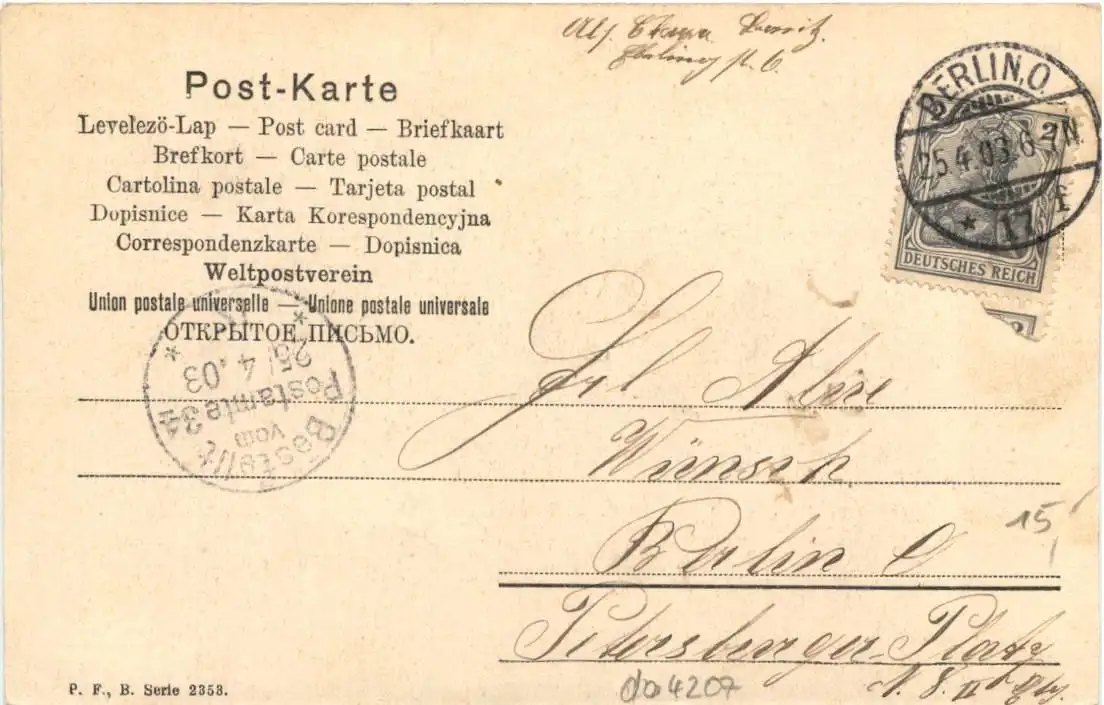 Post-Karte
Levelezö-Lap — Post card — Briefkaart
Brefkort — Carte postale
Cartolina postale — Tarjeta postal
Dopisnice — Karta Korespondencyjna
Correspondenzkarte — Dopisnica
Weltpostverein
Union postale universelle — Unione postale universale
ОТКРЫТОЕ ПИСЬМО.
BERLIN, O.
25 4 03 6-7N
* 17 f
DEUTSCHES REICH
Bestellt
vom
Postamte 34
25/4.03
* *
Frl. Aline
Wünsch
Berlin O
Petersburger Platz
N. 8. II
15
do4207
P. F., B. Serie 2353.